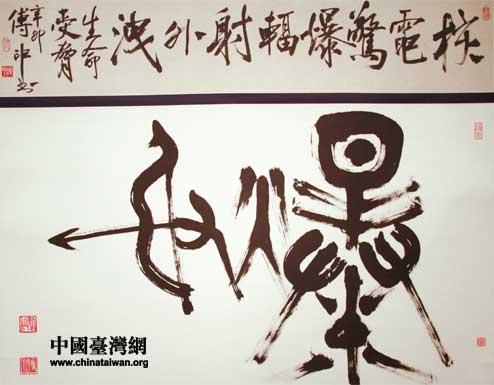 核電驚爆輻射外洩
生命
受脅
辛卯
傅申書
爆射
中國臺灣網
www.chinataiwan.org